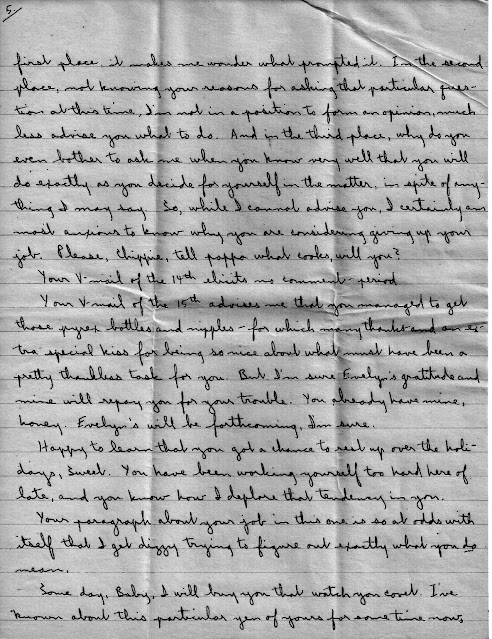 5.
first place, it makes me wonder what prompted it. In the second
place, not knowing your reasons for asking that particular ques-
tion at this time, I'm not in a position to form an opinion, much
less advise you what to do. And in the third place, why do you
even bother to ask me when you know very well that you will
do exactly as you decide for yourself in the matter, in spite of any-
thing I may say. So, while I cannot advise you, I certainly am
most anxious to know why you are considering giving up your
job. Please, Chippie, tell poppa what cooks, will you?
Your V-mail of the 14th elicits no comment - period
Your V-mail of the 15th advises me that you managed to get
those pyrex bottles and nipples - for which many thanks and an ex-
tra special kiss for being so nice about what must have been a
pretty thankless task for you. But I'm sure Evelyn's gratitude and
mine will repay you for your trouble. You already have mine,
honey. Evelyn's will be forthcoming, I'm sure.
Happy to learn that you got a chance to rest up over the holi-
days, Sweet. You have been working yourself too hard here of
late, and you know how I deplore that tendency in you.
Your paragraph about your job in this one is so at odds with
itself that I get dizzy trying to figure out exactly what you do
mean.
Some day, Baby, I will buy you that watch you covet. I've
known about this particular yen of yours for some time now,